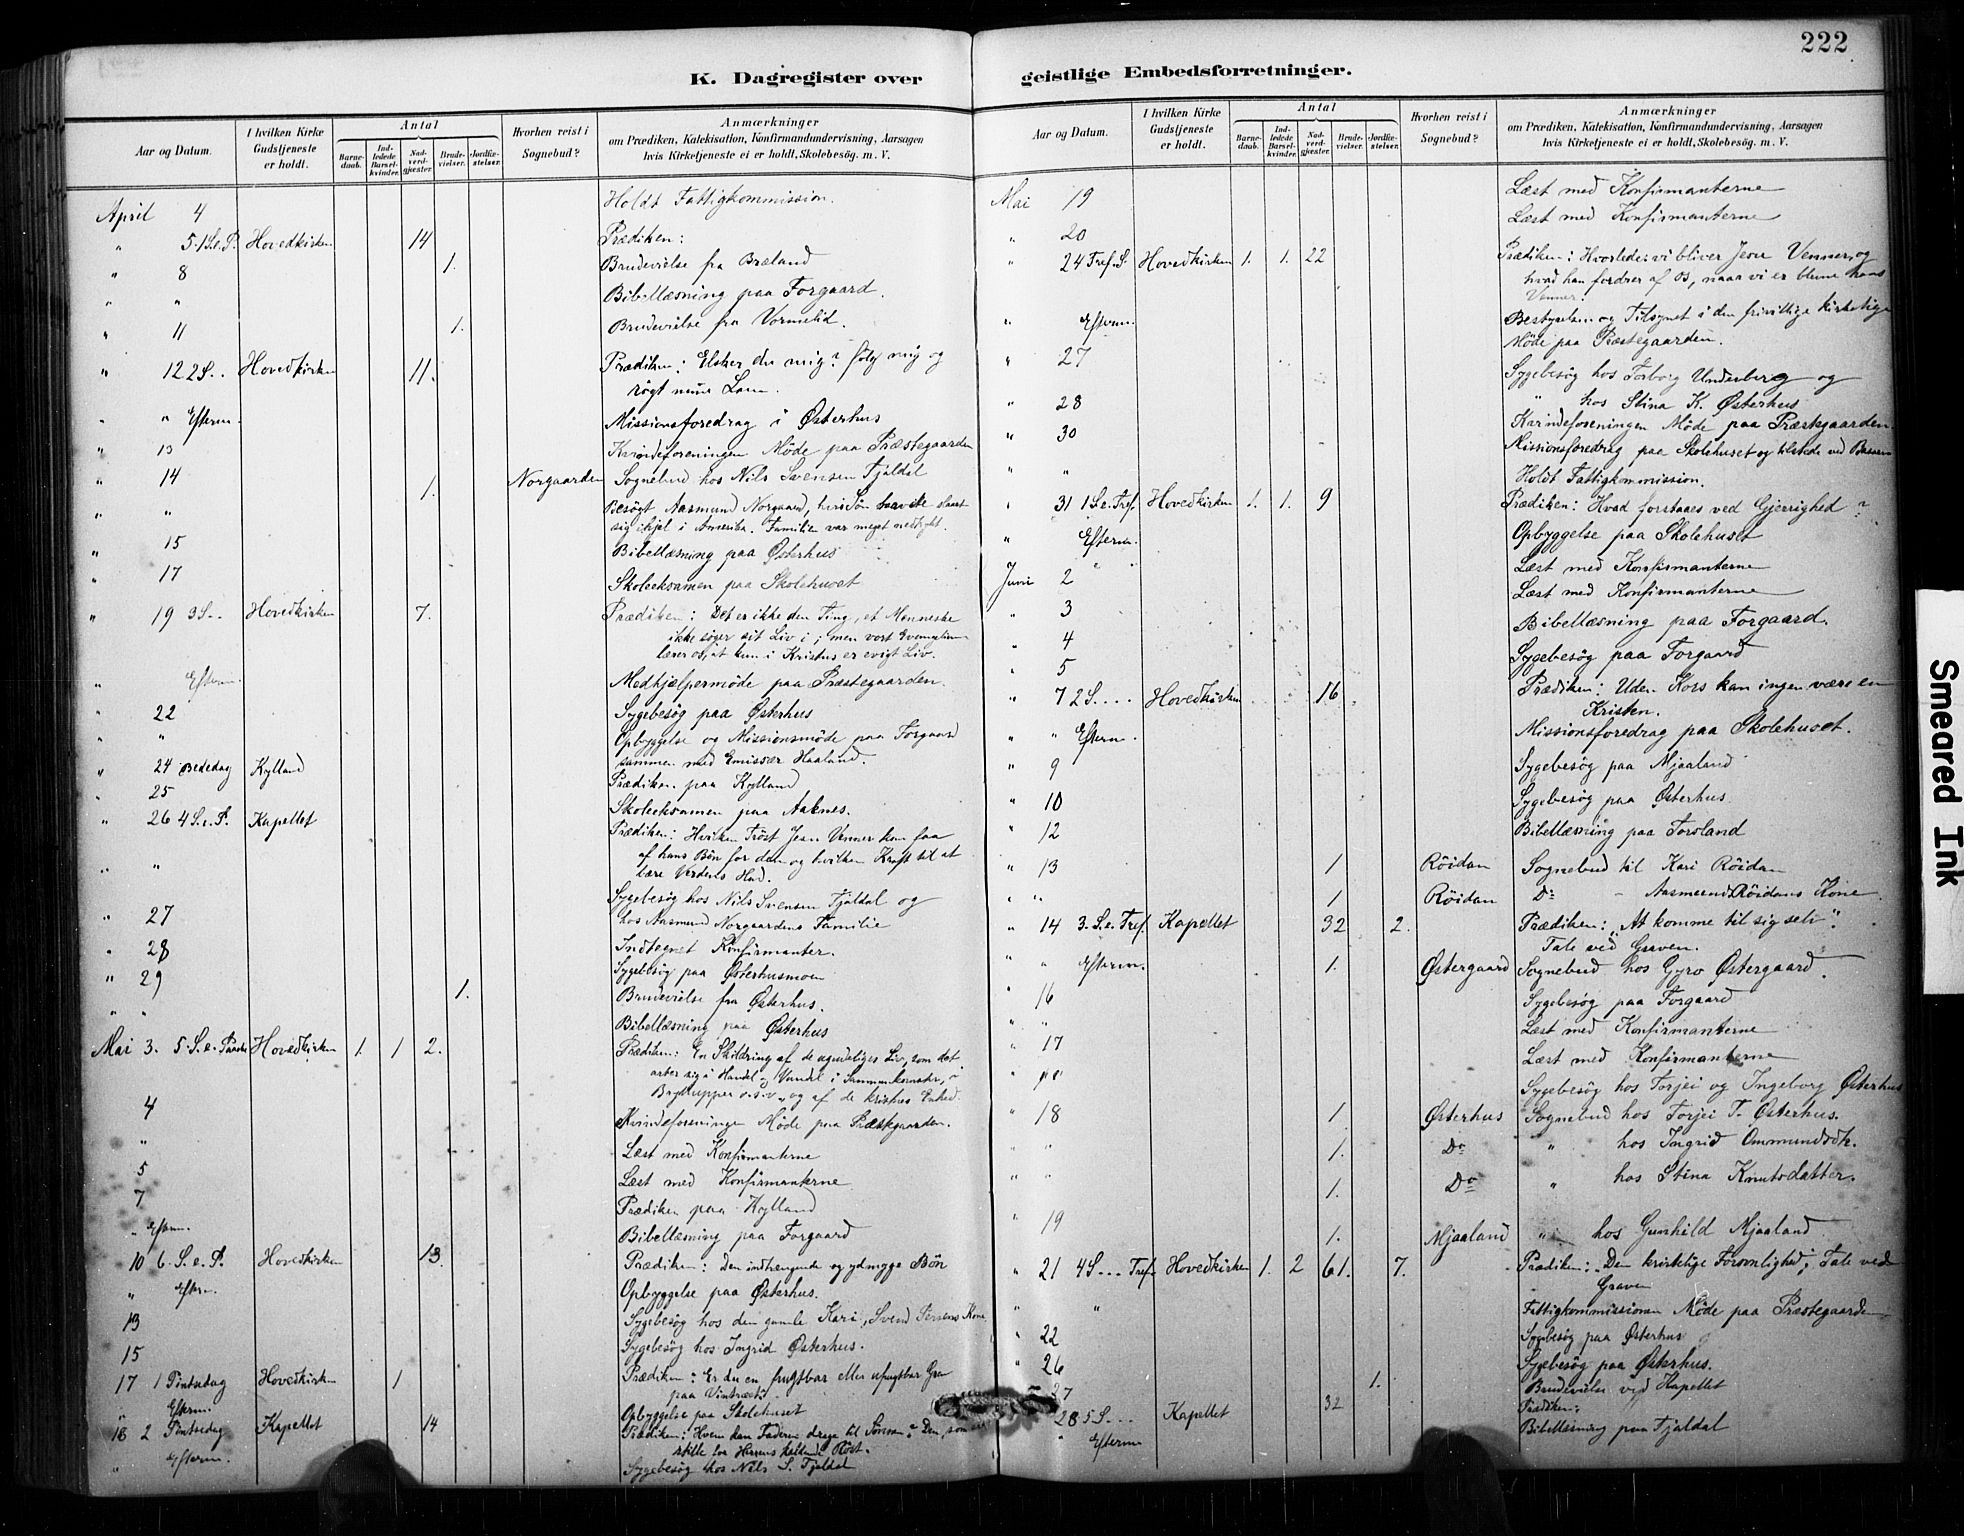 222
K. Dagregister over geistlige Embedsforretninger.
Aar og Datum. I hvilken Kirke Gudstjeneste er holdt. Antal Barnedaab. Indledede Barselkvinder. Nadverdgjæster. Brudevielser. Jordfæstelser. Hvorhen reist i Sognebud? Anmærkninger om Prædiken, Katekisation, Konfirmandundervisning, Aarsagen hvis Kirketjeneste ei er holdt, Skolebesøg. m. V.
April 4 Holdt Fattigkommission.
" 5 1 S.e.P. Hovedkirken 14 Prædiken:
" 8 1. Brudevielse fra Bræland
" " Bibellæsning paa Forgaard.
" 11 1. Brudevielse fra Vormelid.
" 12 2 S.. Hovedkirken 11. Prædiken: Elsker du mig? følg mig og
røgt mine Lam.
" " Efterm. Missionsforedrag i Østerhus
" 13 Kvindeforeningen Møde paa Præstegaarden
" 14 1. Norgaarden Sognebud hos Nils Svensen Fjaldal
" " Besøgt Aasmund Norgaard, hvis Søn
sig ihjel i Amerika. Familien var meget nedtrykt.
" 15 Bibellæsning paa Østerhus
" 17 Skoleeksamen paa Skolehuset
" 19 3 S.. Hovedkirken 7. Prædiken: Det er ikke den Ting, et Menneske
ikke søger sit Liv i; men vort Evangelium
lærer os, at kun i Kristus er evigt Liv.
" Efterm. Medhjælpermøde paa Præstegaarden.
" 22 Sygebesøg paa Østerhus
" " Opbyggelse og Missionsmøde paa Forgaard
sammen med Emissær Haaland.
" 24 Bededag Kylland Prædiken paa Kylland
" 25 Skoleeksamen paa Aaknes.
" 26 4 S.e.P. Kapellet Prædiken: Hvilken Trøst Jesu Venner kan faa
af hans Bøn for dem og hvilken Kraft til at
bære Verdens Had.
" " Sygebesøg hos Nils Svensen Fjaldal og
" 27 hos Aasmund Norgaardens Familie
" 28 Indtegnet Konfirmanter.
" 29 Sygebesøg paa Østerhusmoen
1. Brudevielse fra Østerhus.
" " Bibellæsning paa Østerhus
Mai 3. 5 S.e. Paaske Hovedkirken 1. 1 2. Prædiken: En Skildring af de ugudeliges Liv, som det
arter sig i Handel og Vandel i Sammenkomster, i
Bryllupper o.s.v., og af de kristnes Enhed.
4 Kvindeforeningen Møde paa Præstegaarden.
" Læst med Konfirmanterne
5 Læst med Konfirmanterne
7 Prædiken paa Kylland
" Efterm. Bibellæsning paa Forgaard
10 6. S.e.P. Hovedkirken 13. Prædiken: Den indtrængende og ydmyge Bøn
" Efterm. Opbyggelse paa Østerhus.
13 Sygebesøg hos den gamle Kari, Svend Kone
15 Sygebesøg hos Ingrid Østerhus.
17 1 Pintsedag Hovedkirken 1 Prædiken: Er du en frugtbar eller ufrugtbar Gren
paa Vintræet?
" Efterm. Opbyggelse paa Skolehuset
18 2 Pintsedag Kapellet 14 Prædiken: Hvem kan Faderen drage til Sønnen? Den, som
stille for Herrens kaldende Røst.
" Efterm. Sygebesøg hos Nils S. Fjaldal
Aar og Datum. I hvilken Kirke Gudstjeneste er holdt. Antal Barnedaab. Indledede Barselkvinder. Nadverdgjæster. Brudevielser. Jordfæstelser. Hvorhen reist i Sognebud? Anmærkninger om Prædiken, Katekisation, Konfirmandundervisning, Aarsagen hvis Kirketjeneste ei er holdt, Skolebesøg. m. V.
Mai 19 Læst med Konfirmanterne
" 20 Læst med Konfirmanterne
" 24 Tref. S. Hovedkirken 1. 1. 22 Prædiken: Hvorledes vi bliver Jesu Venner, og
hvad han fordrer af B, naar vi er blevne hans
Venner.
" Efterm. Bestyrelsen og Tilsynet i den frivillige kirkelige
Møde paa Præstegaarden.
" 27 Sygebesøg hos Torborg Underberg og
" 28 " hos Stina K. Østerhus
" 30 Kvindeforeningen Møde paa Præstegaarden.
Missionsforedrag paa Skolehuset og tilstede ved
" " Holdt Fattigkommission.
" 31 1 S.e. Tref. Hovedkirken 1. 1. 9 Prædiken: Hvad forstaaes ved Gjerrighed?
" Efterm. Opbyggelse paa Skolehuset
Juni 2 Læst med Konfirmanterne
" 3 Læst med Konfirmanterne
" 4 Bibellæsning paa Forgaard.
" 5 Sygebesøg paa Forgaard
" 7 2 S.... Hovedkirken 16 Prædiken: Uden Kors kan ingen være en
Kristen.
" " Efterm. Missionsforedrag paa Skolehuset.
" 9 Sygebesøg paa Mjaaland
" 10 Sygebesøg paa Østerhus
" 12 Bibellæsning paa Forsland
" 13 1 Røidan Sognebud til Kari Røidan
" " 1 Røidan Do - Aasmund Røidans Kone
" 14 3. S.e. Tref. Kapellet 32 2. Prædiken: "At komme til sig selv".
Tale ved Graven.
" " Efterm. 1. Østergaard Sognebud hos Gyro Østergaard.
" 16 Sygebesøg paa Forgaard
" " Læst med Konfirmanterne
" 17 Læst med Konfirmanterne
" " Sygebesøg hos Torjei og Ingeborg Østerhus
" 18 1. Østerhus Sognebud hos Torjei T. Østerhus.
" " 1. Do " hos Ingrid Ommundsdt.
" " 1. Do " hos Stina Knutsdatter.
" 19 1. Mjaaland " hos Gunhild Mjaaland.
" 21 4 S... Tref. Hovedkirken 1. 2 61. 7. Prædiken: "Den kristelige Forsonlighed"; Tale ved
Graven
" " Fattigkommissionen Møde paa Præstegaarden
" 22 Sygebesøg paa Østerhus
" 26 Sygebesøg paa Østerhus.
" 27 1. Brudevielse ved Kapellet
" 28 5 S... Kapellet 32 Prædiken:
" Efterm Bibellæsning paa Fjaldal
Smeared Ink